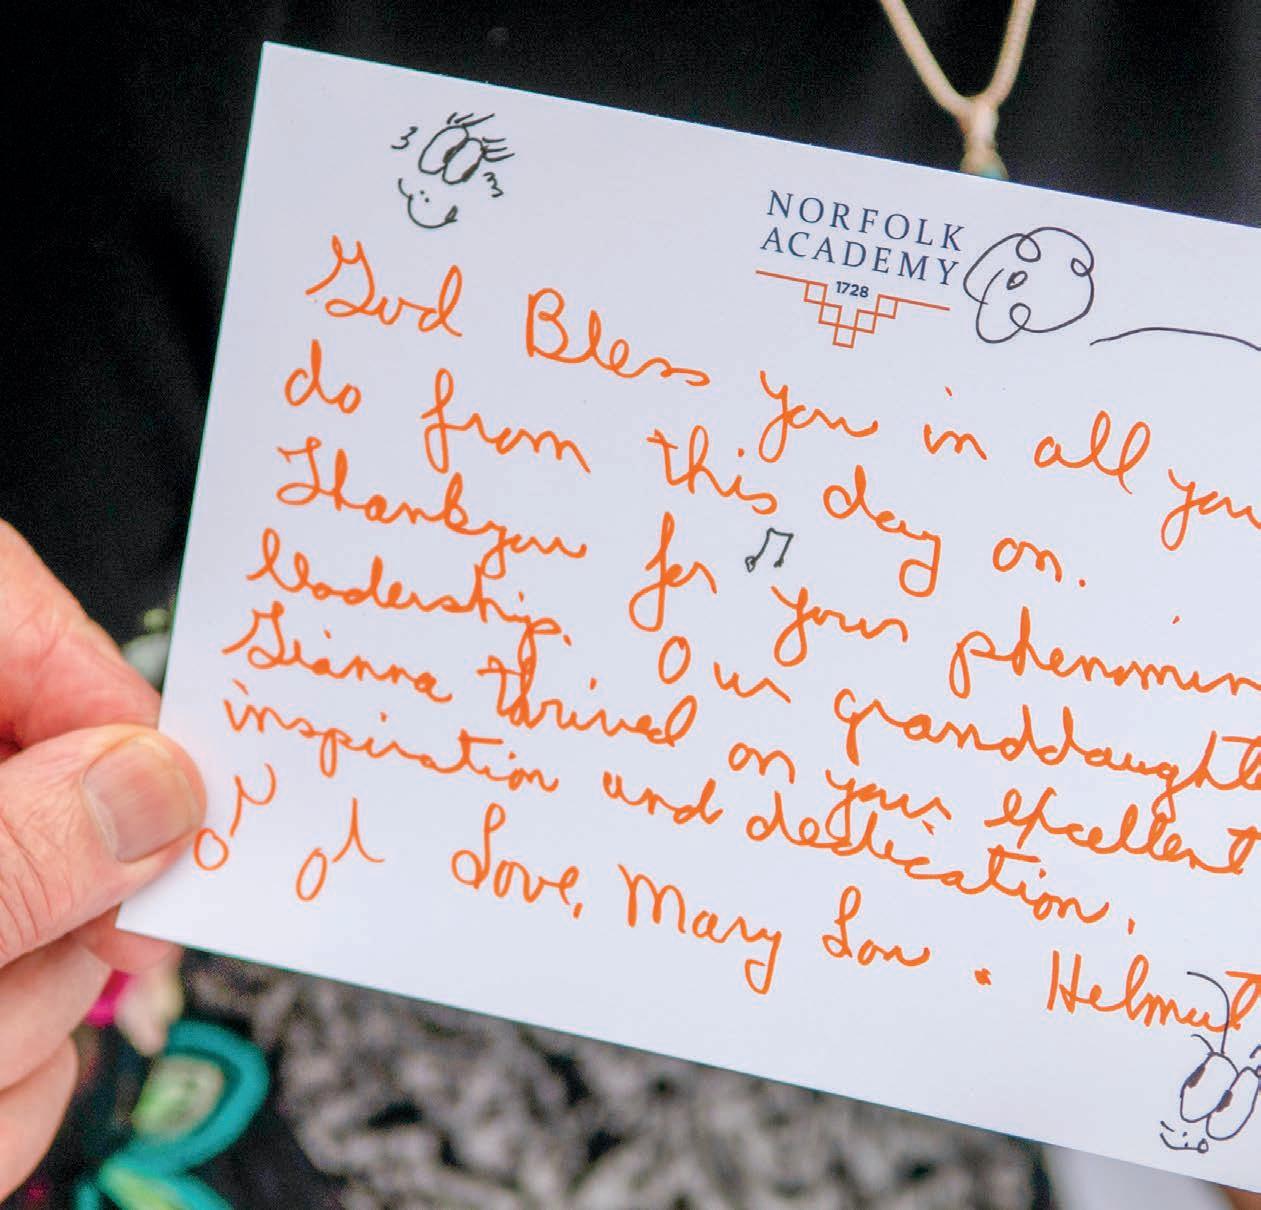 NORFOLK
ACADEMY
1728
God Bless you in all you
do from this day on.
Thankyou for your phenomin
leadership. Our granddaughte
Gianna thrived on your excellent
inspiration and dedication.
Love, Mary Lou . Helmut